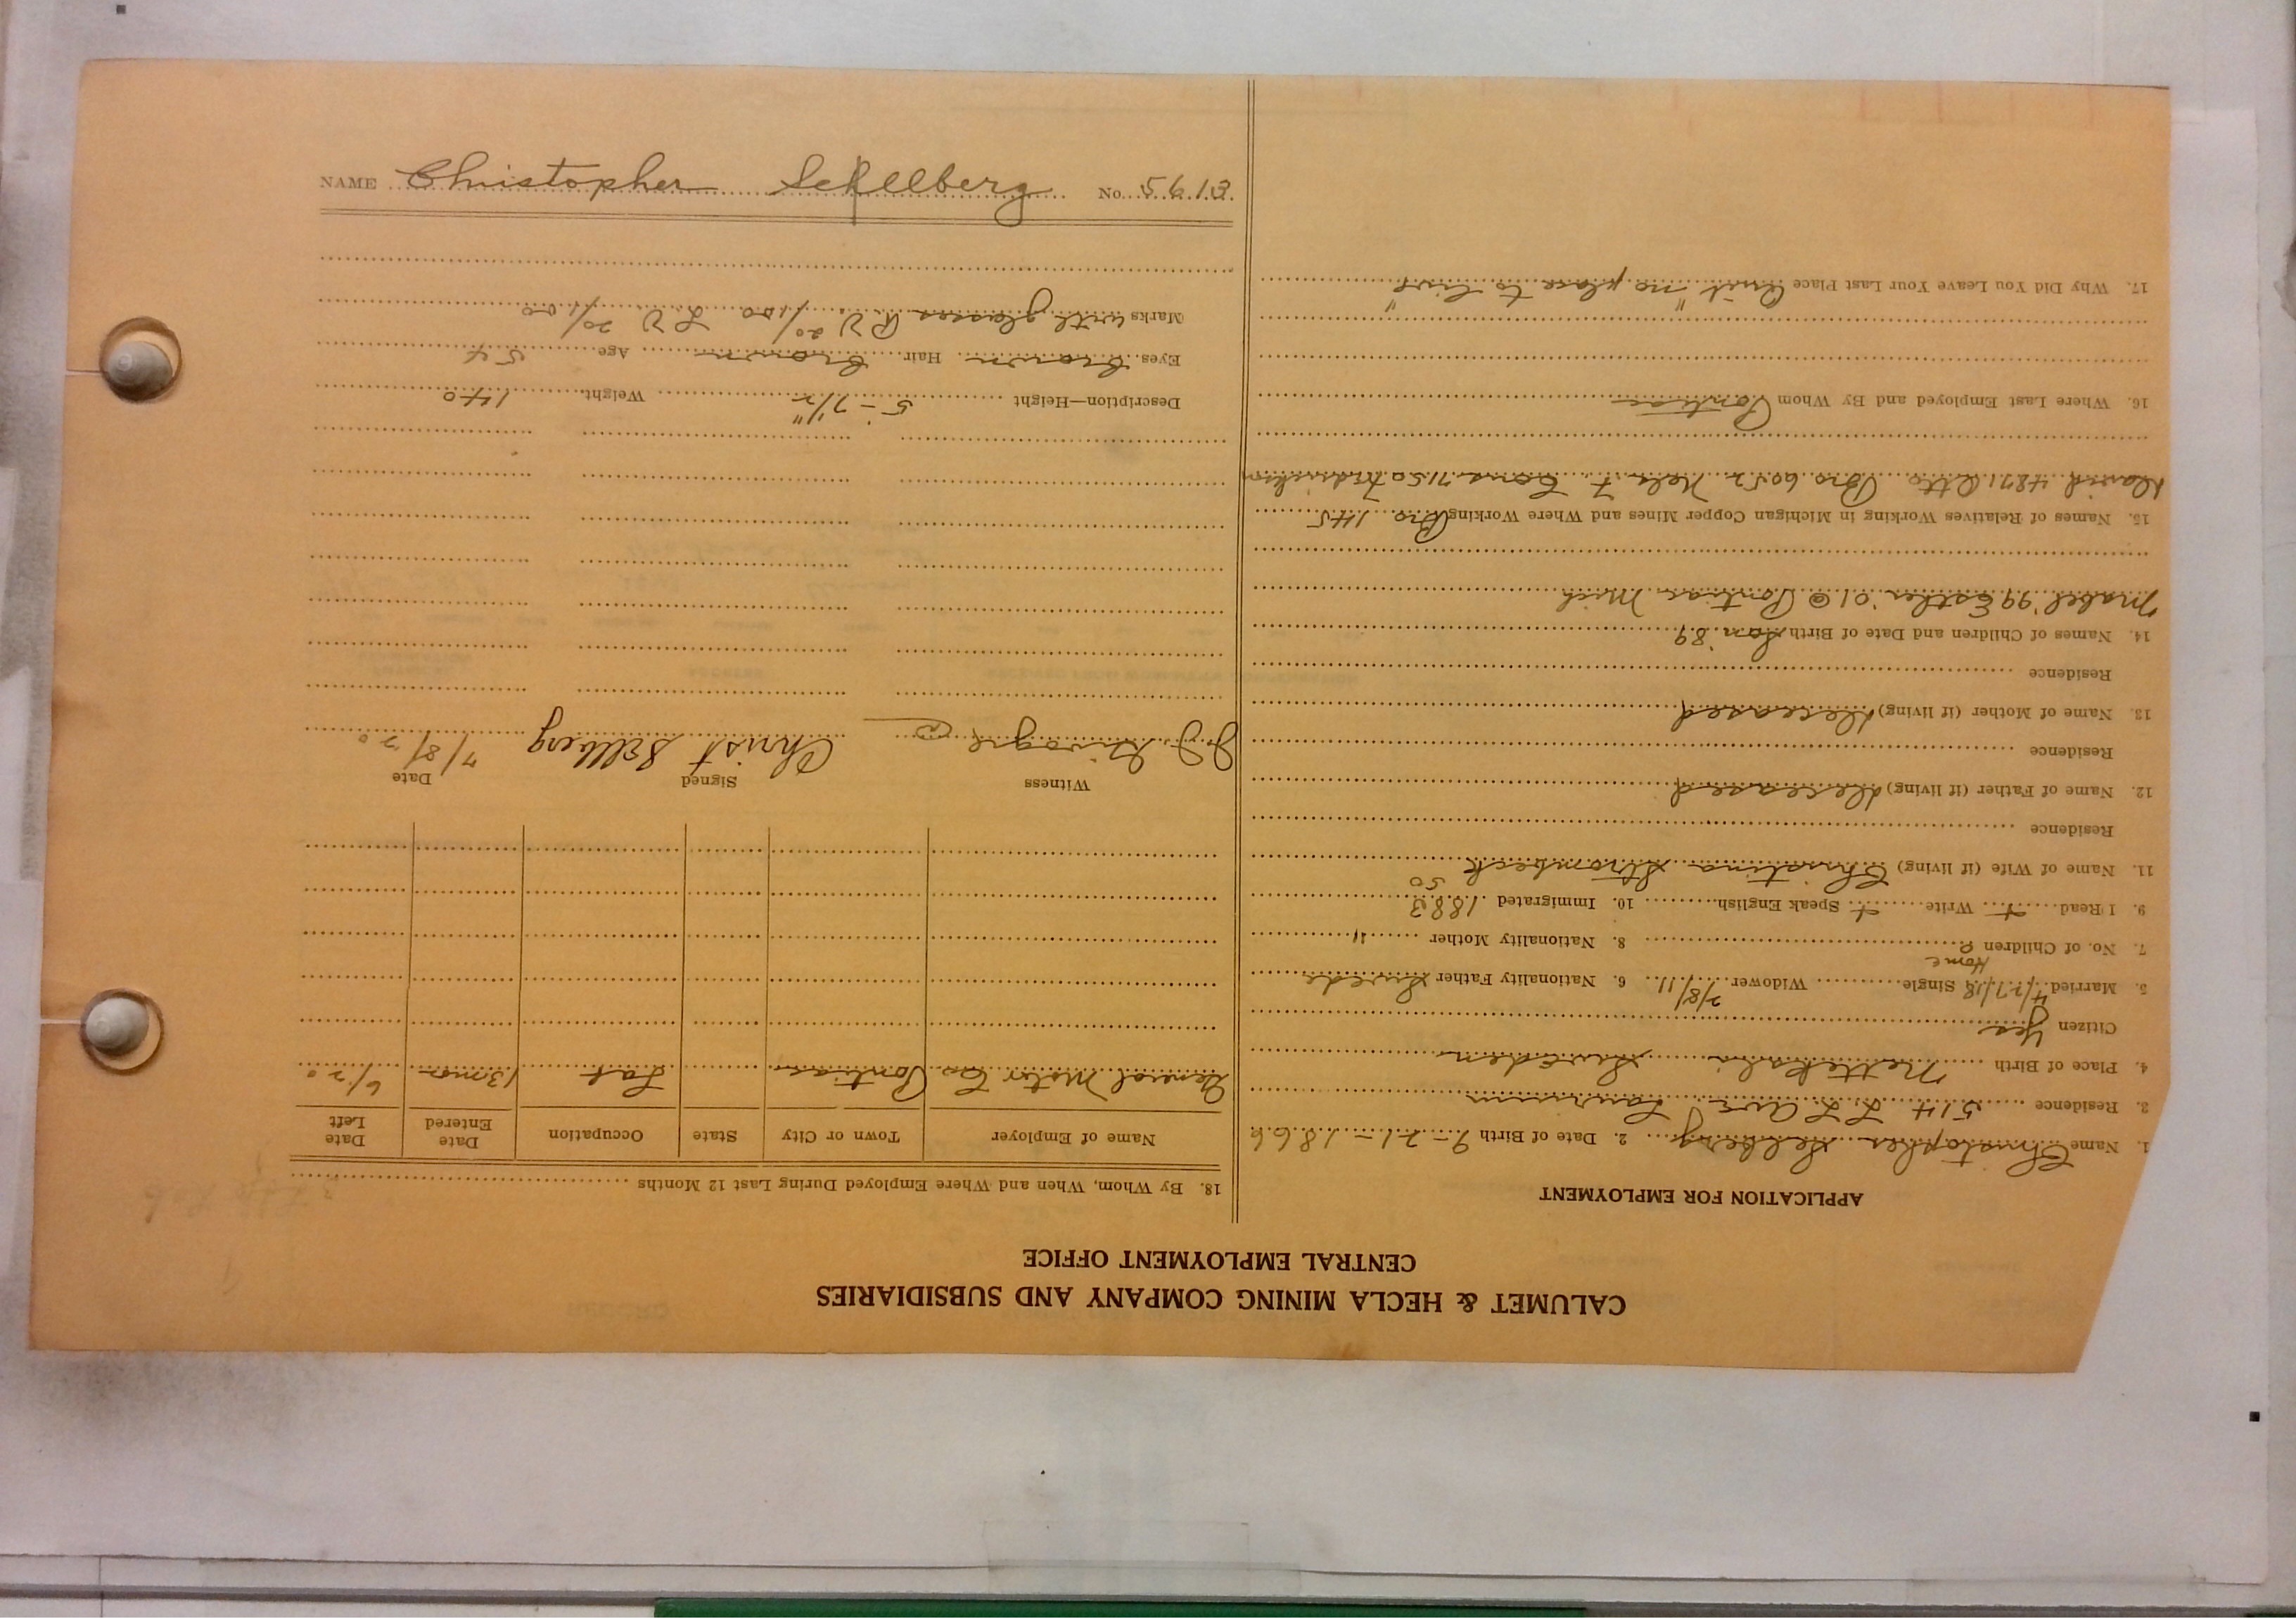 CALUMET & HECLA MINING COMPANY AND SUBSIDIARIES
CENTRAL EMPLOYMENT OFFICE
APPLICATION FOR EMPLOYMENT
1. Name Christopher Selberg 2. Date of Birth 9-21-1866
3. Residence 514 L.L. Ave Laurium
4. Place of Birth Sweden
Citizen Yes
5. Married 4/27/18 Single Widower 2/8/11 6. Nationality Father Swede
Home
7. No. of Children 2 8. Nationality Mother "
9. I Read + Write + Speak English 10. Immigrated 1883
50
11. Name of Wife (if living) Christina Strombeck
Residence
12. Name of Father (if living) deceased
Residence
13. Name of Mother (if living) deceased
Residence
14. Names of Children and Date of Birth '89
Mabel '99 Esther '01 @ Pontiac Mich
15. Names of Relatives Working in Michigan Copper Mines and Where Working Bro 145
David 4871 Otto Bro 6052 Hela F. 7150
16. Where Last Employed and By Whom Pontiac
17. Why Did You Leave Your Last Place Quit "no place to live"
18. By Whom, When and Where Employed During Last 12 Months
Name of Employer Town or City State Occupation Date Entered Date Left
General Motor Co Pontiac Lab 13 mos 6/20
Witness Signed Date
Christ Sellberg 7/8/20
Description—Height 5'-7 1/2" Weight 140
Eyes brown Hair brown Age 54
Marks with glasses RV 20/100 LV 20/100
NAME Christopher Sellberg No. 5613